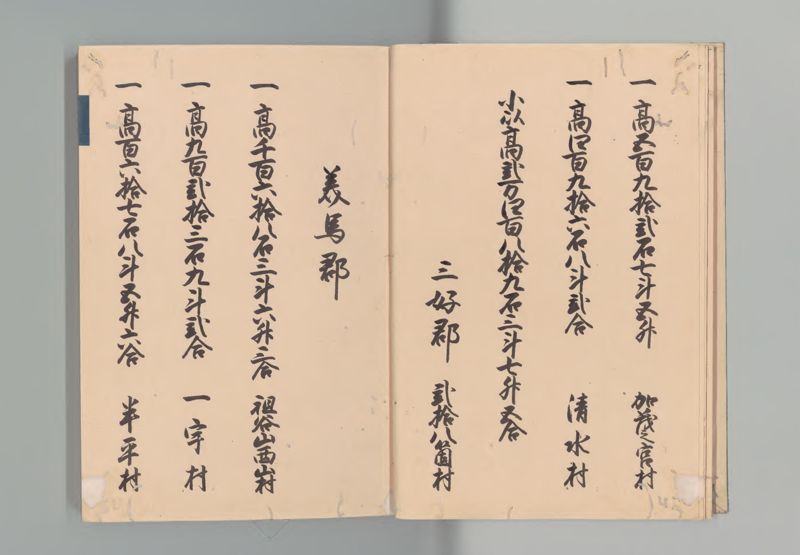 一高五百九拾弐石七斗五升 加茂之宮村
一高四百九拾六石八斗弐合 清水村
小以高弐万四百八拾九石三斗七升五合
三好郡 弐拾八箇村
美馬郡
一高千百六拾八石三斗六升三合 祖谷山西山村
一高九百弐拾三石九斗弐合 一宇村
一高百六拾七石八斗五升六合 半平村